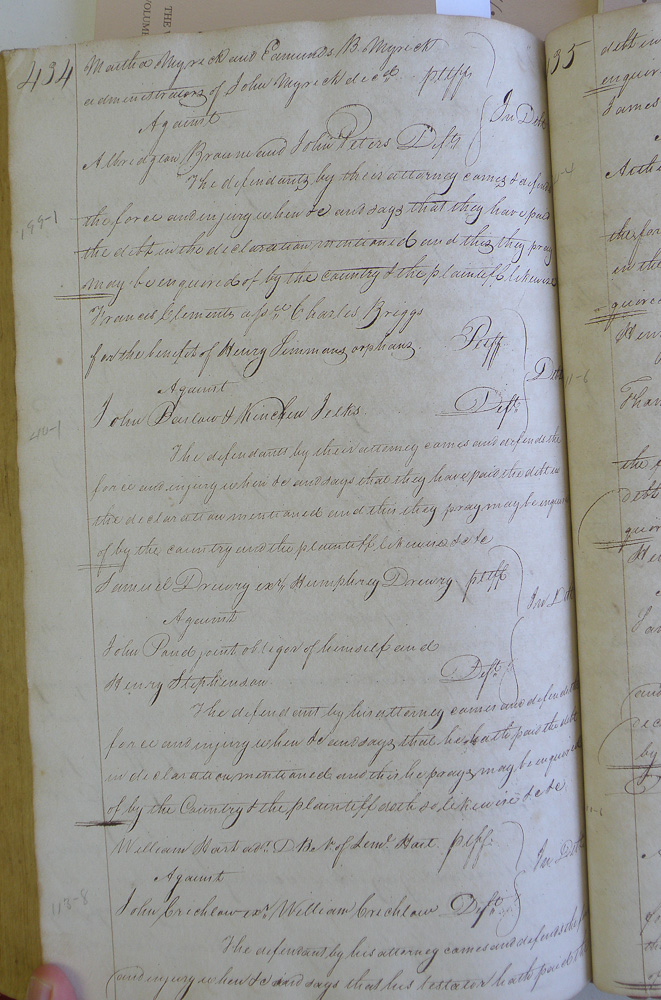 434
Martha Myrick and Edmunds B. Myrick
administrators of John Myrick decd. pltff
Against
In Debt
Albridgton Browne and John Peters Defts
The defendants by their attorney comes & defends
the force and injury when &c and says that they have paid
the debt in the declaration mentioned and this they pray
may be enquired of by the country & the plaintiff likewise
199-1
Francis Clements assee. Charles Briggs
for the benefit of Henry Simmons orphans. Pltff.
Against
Debt
John Barlow & Kinchen Jelks Defts
40-1
The defendants by their attorney comes and defends the
force and injury when &c and says that they have paid the debt in
the declaration mentioned and this they pray may be enquired
of by the country and the plaintiff likewise &c &c
Samuel Drewry exr. Humphrey Drewry pltff
Against
In Debt
John Pond joint obligor of himself and
Henry Stephenson Deft.
The defendant by his attorney comes and defends the
force and injury when &c and says that he hath paid the debt
in declaration mentioned and this he prays may be enquired
of by the Country & the plaintiff doth so likewise &c &c.
William Hart ad. D B N of Seml. Hart. pltff.
Against
In Debt
113-8
John Crichlow exr. William Crichlow Deft.
The defendant by his attorney comes and defends the force
and injury when &c and says that his testator hath paid the
35
debt in
enquire
James
the for
in the
quired
Hen
11-6
Than
the f
Debt
quired
He
and
by